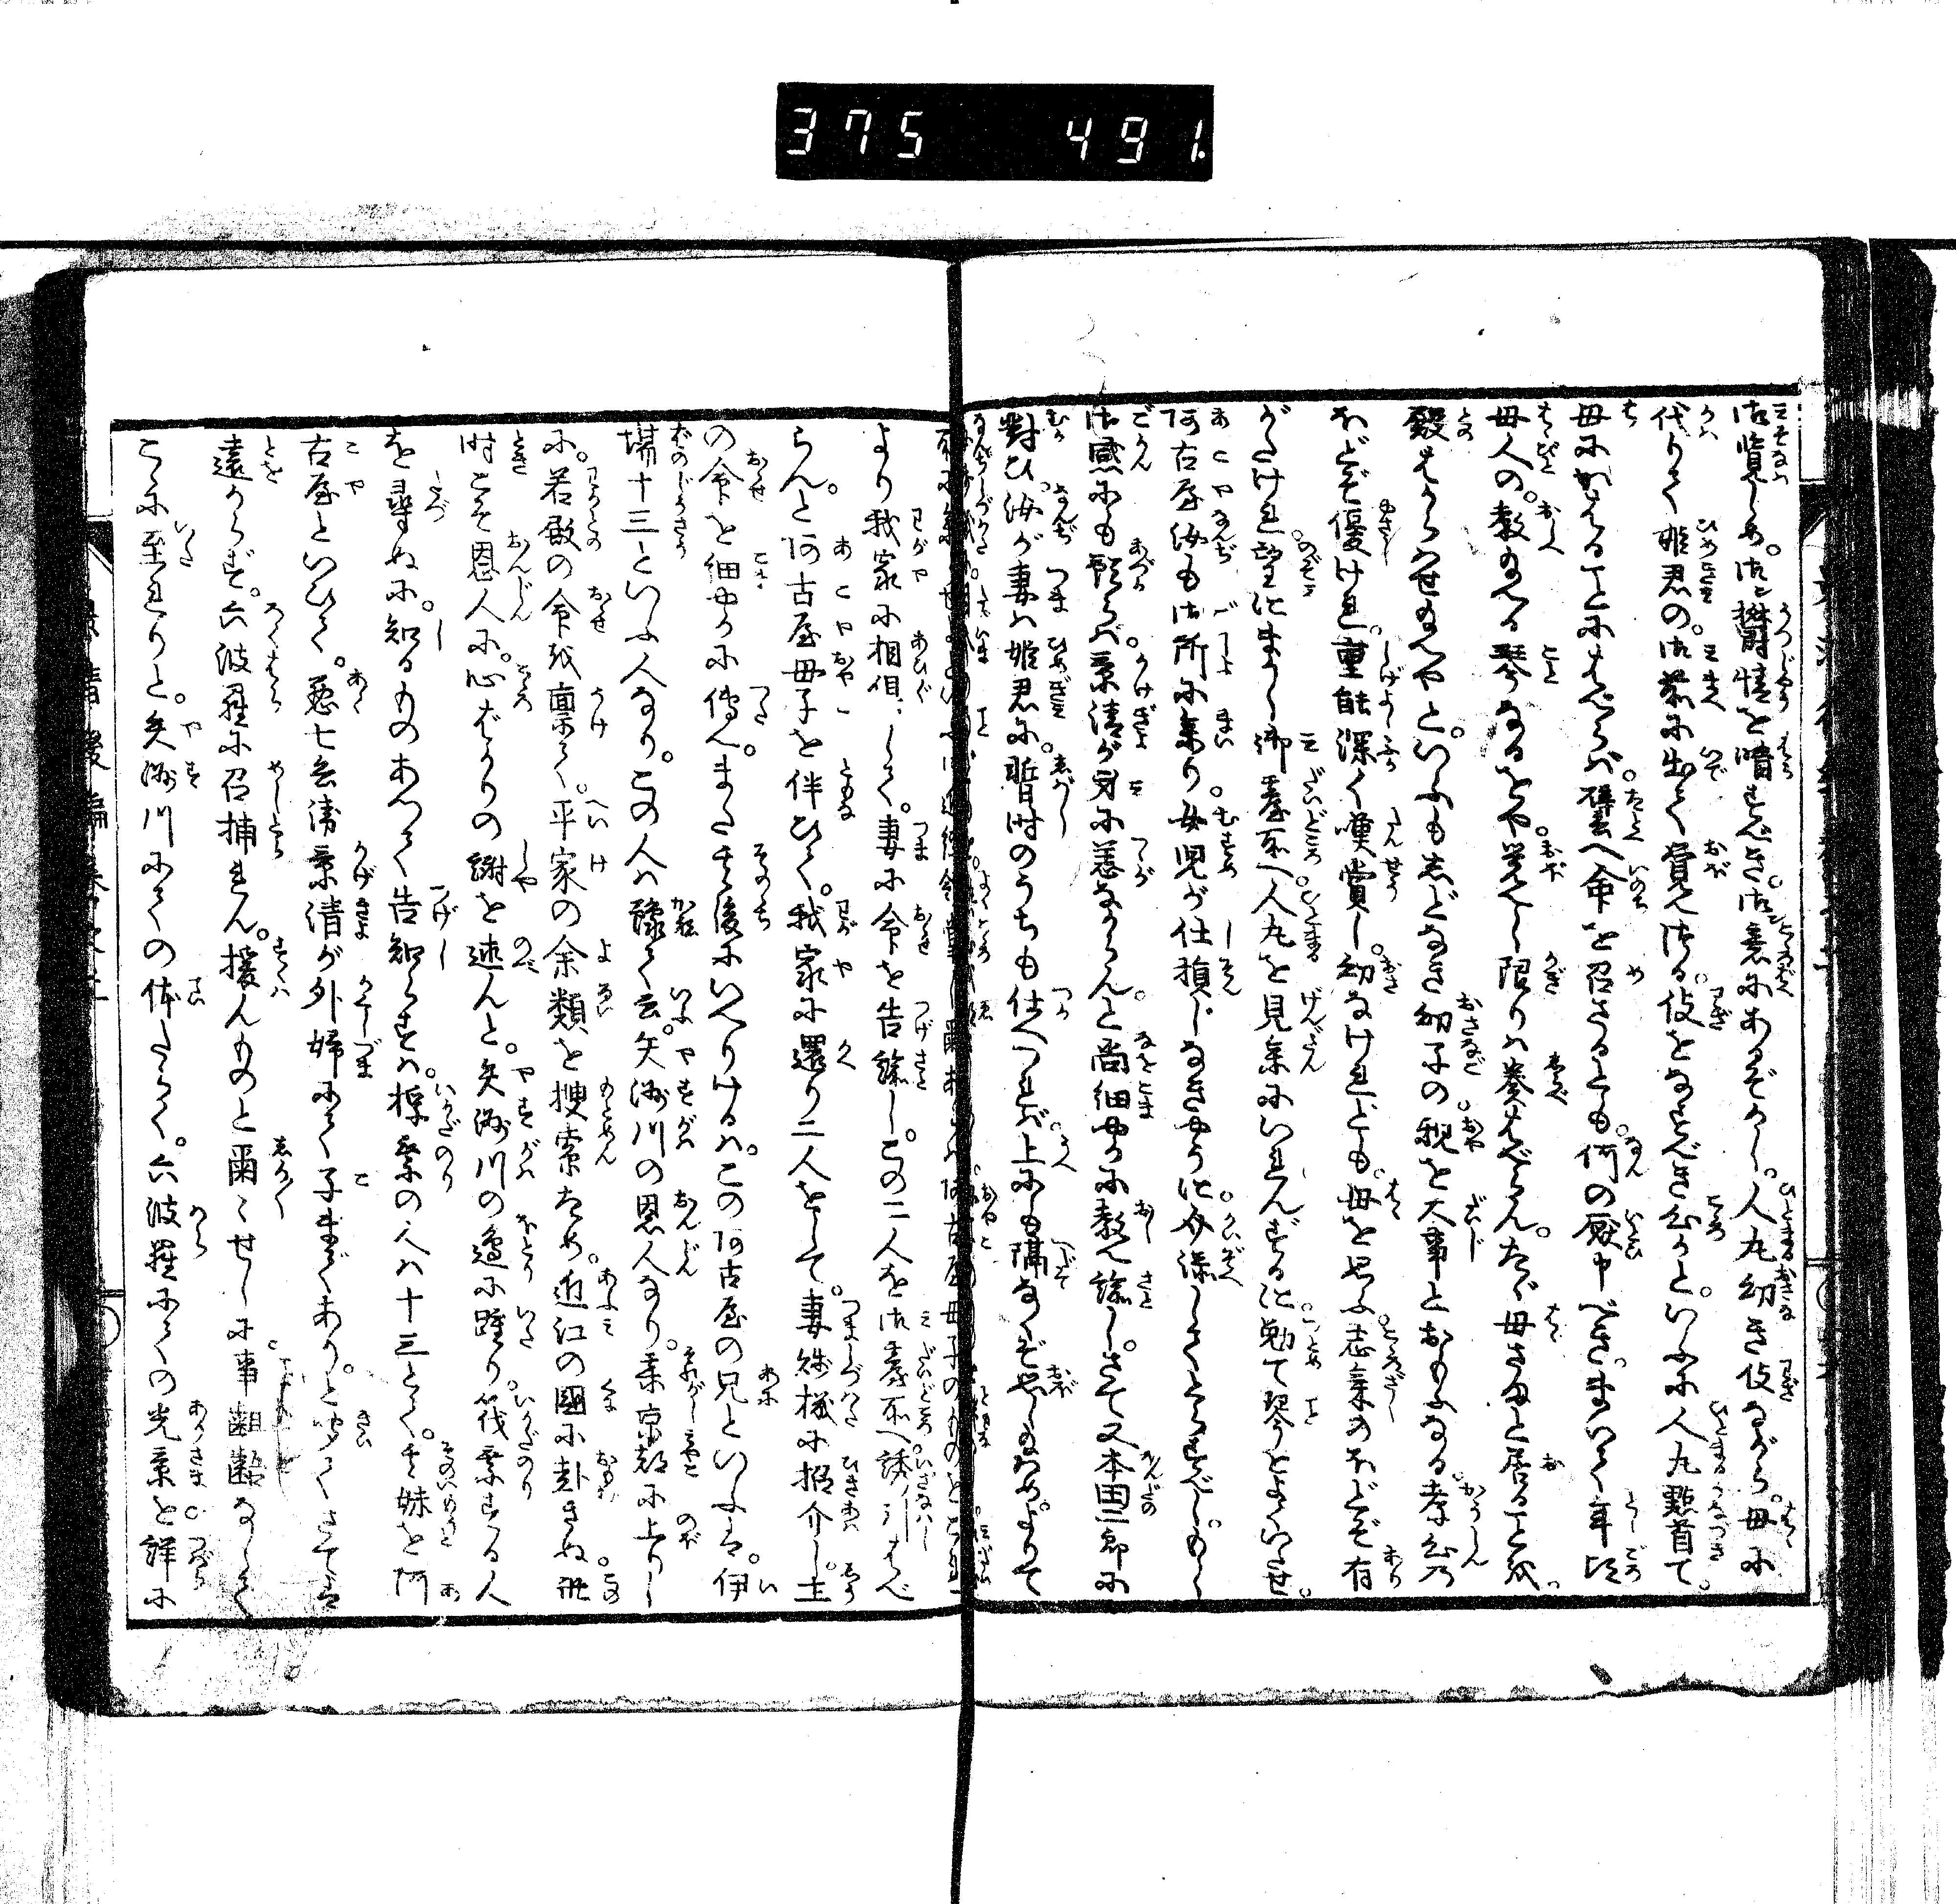 375 491
御覧しめ。御ン欝情を晴すべき。御ン意にあるぞかし。人丸幼き伎ながら。母に
代りて姫君の。御前に出て覚え侍る。伎をなすべき心かと。いふに人丸點首て。
母にかはることにはべらば。譬へ命を召さるゝとも。何の厭申べき。まいて年頃
母人の。教給へる琴なるをや。覚えし限りは奏はべらん。たゞ母さまと居ることを。
殿はからはせ給へやと。いふもあどなき幼子の。親を大事とおもふなる。孝心の
ほどぞ優けれ。重能深く嘆賞し。幼なけれども。母を思ふ志気のほどぞ有
がたけれ望にまかし御臺所へ人丸を見参にいれんずるに。勉て琴をよくいたせ。
阿古屋汝も御所に参り。女児が仕損じなきやうに。介添してとらすべし。もし
御感にも預らば。景清が身に恙なからんと尚細やかに教へ諭し。さて又本田二郎に
對ひ。汝が妻は姫君に。暫時のうちも仕へつれば。上にも隔なくぞ思し給はめ。よりて
より我家に相俱して。妻に命を告諭し。この二人を御臺所へ誘引はべ
らんと阿古屋母子を伴ひて。我家に還り二人をして。妻綈機に招介し。主
の命を細やかに傳へ。また其後にいへりけるは。この阿古屋の兄といふは。伊
場十三といふ人なり。この人は豫て云。矢洲川の恩人なり。某京都に上りし
に。若殿の命を稟て。平家の余類を捜索ため。近江の國に赴きぬ。此
時こそ恩人に。心ばかりの謝を述んと。矢洲川の邉に踵り。筏乗する人
を尋ぬに。知るものあつて告知らすは。桴乗の人は十三とて。其妹を阿
古屋といひて。悪七兵衛景清が外婦にて子まであり。と聞てさては
遠からず。六波羅に召捕れん。援んものと爾々せしに事齟齬なして
こゝに至れりと。矢洲川にての体たらく。六波羅にての光景を詳に